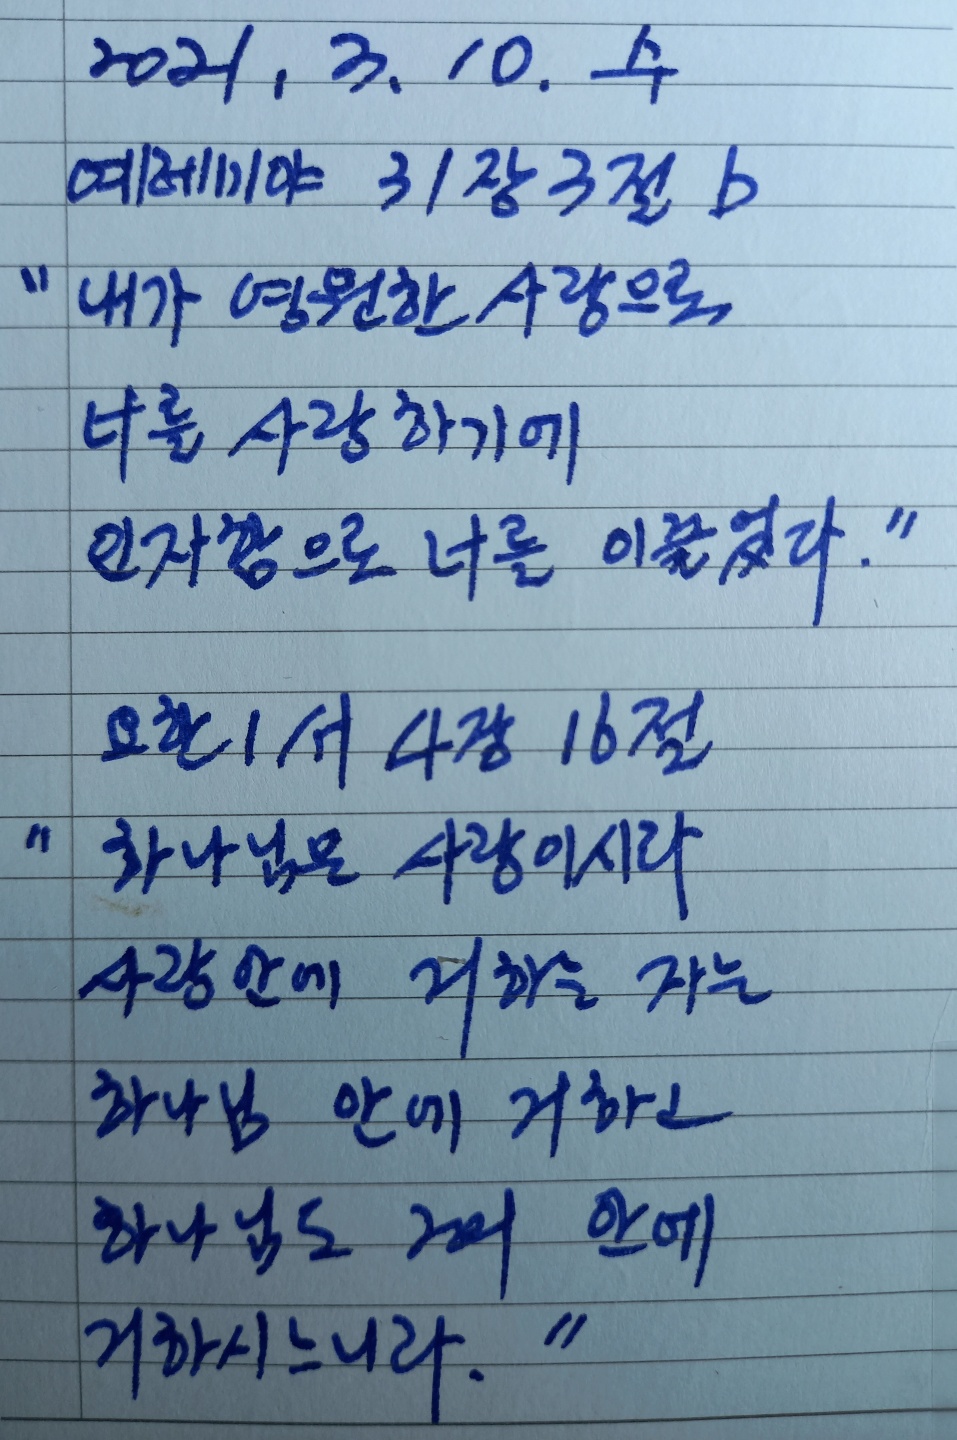 2021. 3. 10. 수
예레미야 31장 3절 b
"내가 영원한 사랑으로
너를 사랑하기에
인자함으로 너를 이끌었다."
요한1서 4장 16절
"하나님은 사랑이시라
사랑안에 거하는 자는
하나님 안에 거하고
하나님도 그의 안에
거하시느니라."